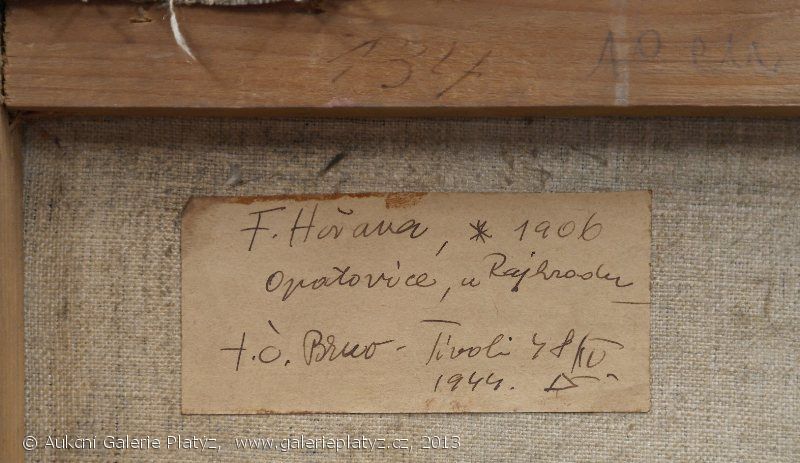 134 10 cm
F. Hořava, * 1906
Opatovice, u Rajhradu
t.č. Brno - Tivoli 48/IV
1944.
© Aukční Galerie Platýz, www.galerieplatyz.cz, 2013